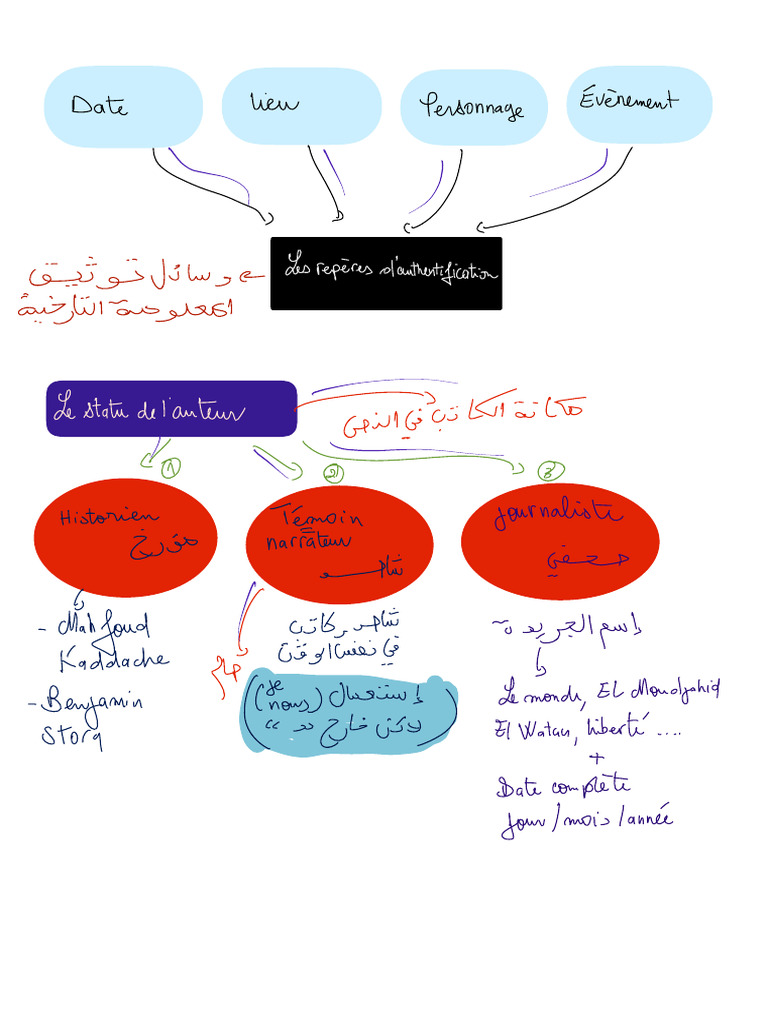 Date
lieu
Personnage
Évènement
Les repères d'authentification
وسائل توثيق
المعلومة التارخية
Le statu de l'auteur
مكانة الكاتب في النص
1
2
3
Historien
مؤرخ
Témoin
narrateur
شاهد
Journaliste
صحفي
- Mahfoud
Kaddache
- Benjamin
Stora
شاهد وكاتب
في نفس الوقت
هام
إستعمال (je
nous)
لاكن خارج " "
إسم الجريدة
Le monde, EL Moudjahid
El Watan, liberté ....
+
Date complète
jour/mois/année